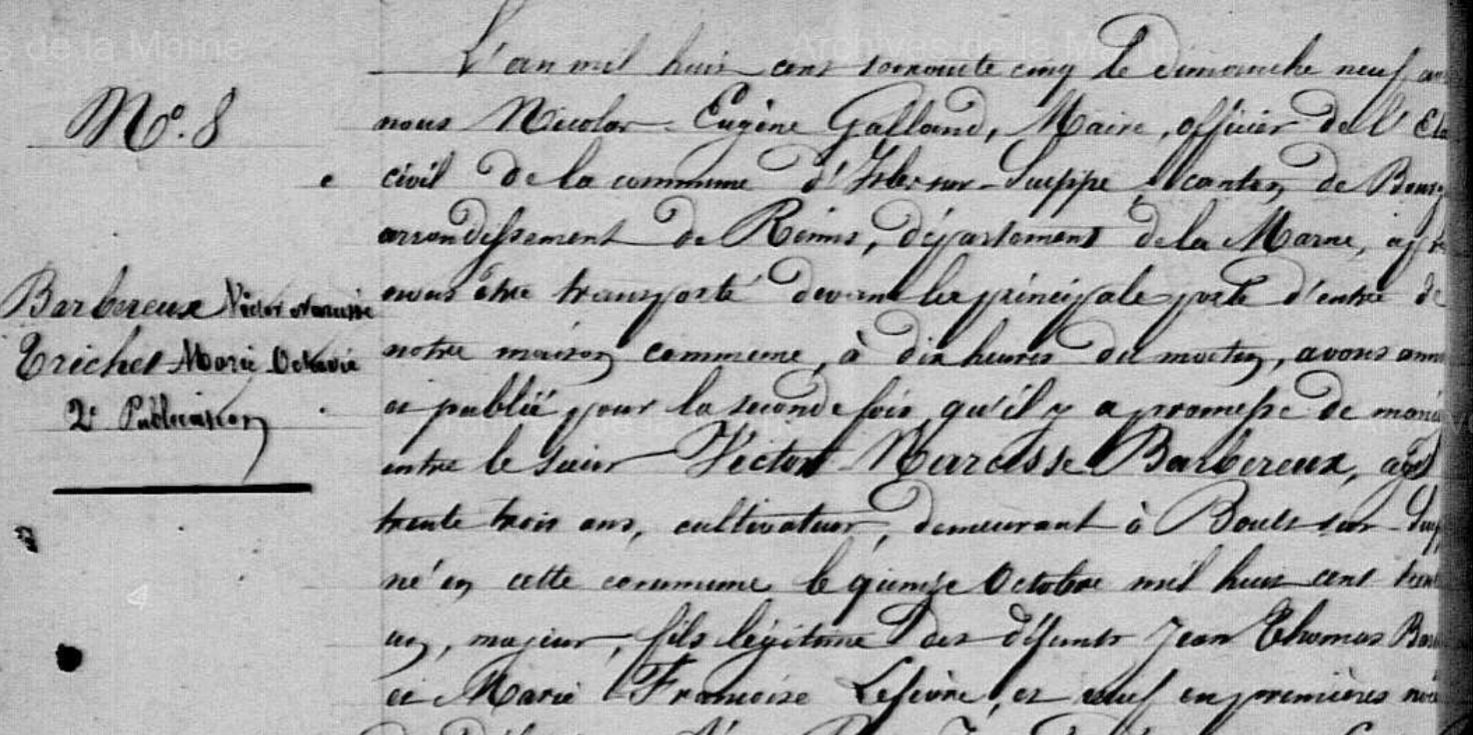 L'an mil huit cent soixante cinq le dimanche neuf
N°. 8
nous Nicolas Eugène Galland, Maire, officier de l'Eta
civil de la commune d'Isles-sur-Suippe, canton de Bourg
arrondissement de Reims, département de la Marne, apr
Barbereux Victor Narcisse
nous être transporté devant la principale porte d'entre de
Trichet Marie Octavie
notre maison commune, à dix heures du matin, avons ann
2e Publication
et publié pour la seconde fois qu'il y a promesse de maria
entre le sieur Victor Narcisse Barbereux, agé
trente trois ans, cultivateur, demeurant à Boult-sur-Suip
né en cette commune le quinze Octobre mil huit cent tren
un, majeur, fils légitime des défunts Jean Thomas Bar
et Marie Françoise Lefèvre, et veuf en premières no